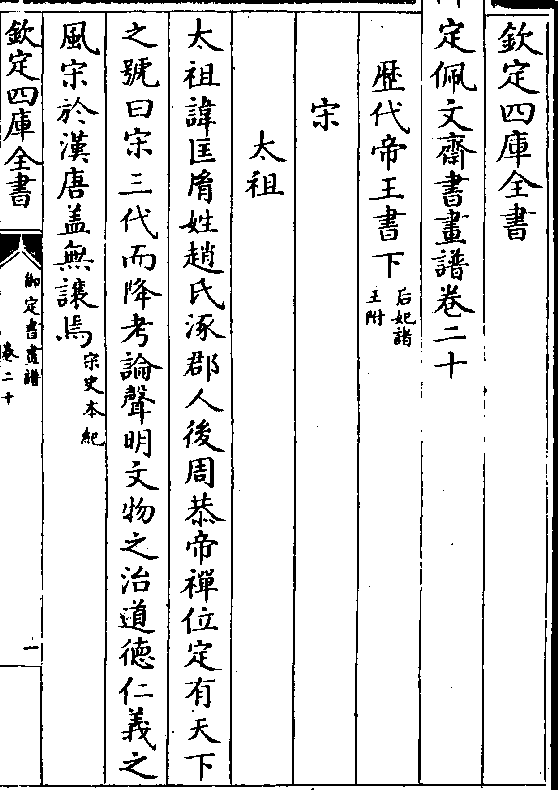 欽定四庫全書
定佩文齋書畫譜卷二十
歴代帝王書下后妃諸王附
宋
太祖
太祖諱匡𦙍姓趙氏涿郡人後周恭帝禪位定有天下
之號曰宋三代而降考論聲明文物之治道德仁義之
風宋於漢唐盖無讓焉宋史本紀
欽定四庫全書
御定書畫譜
卷二十
一